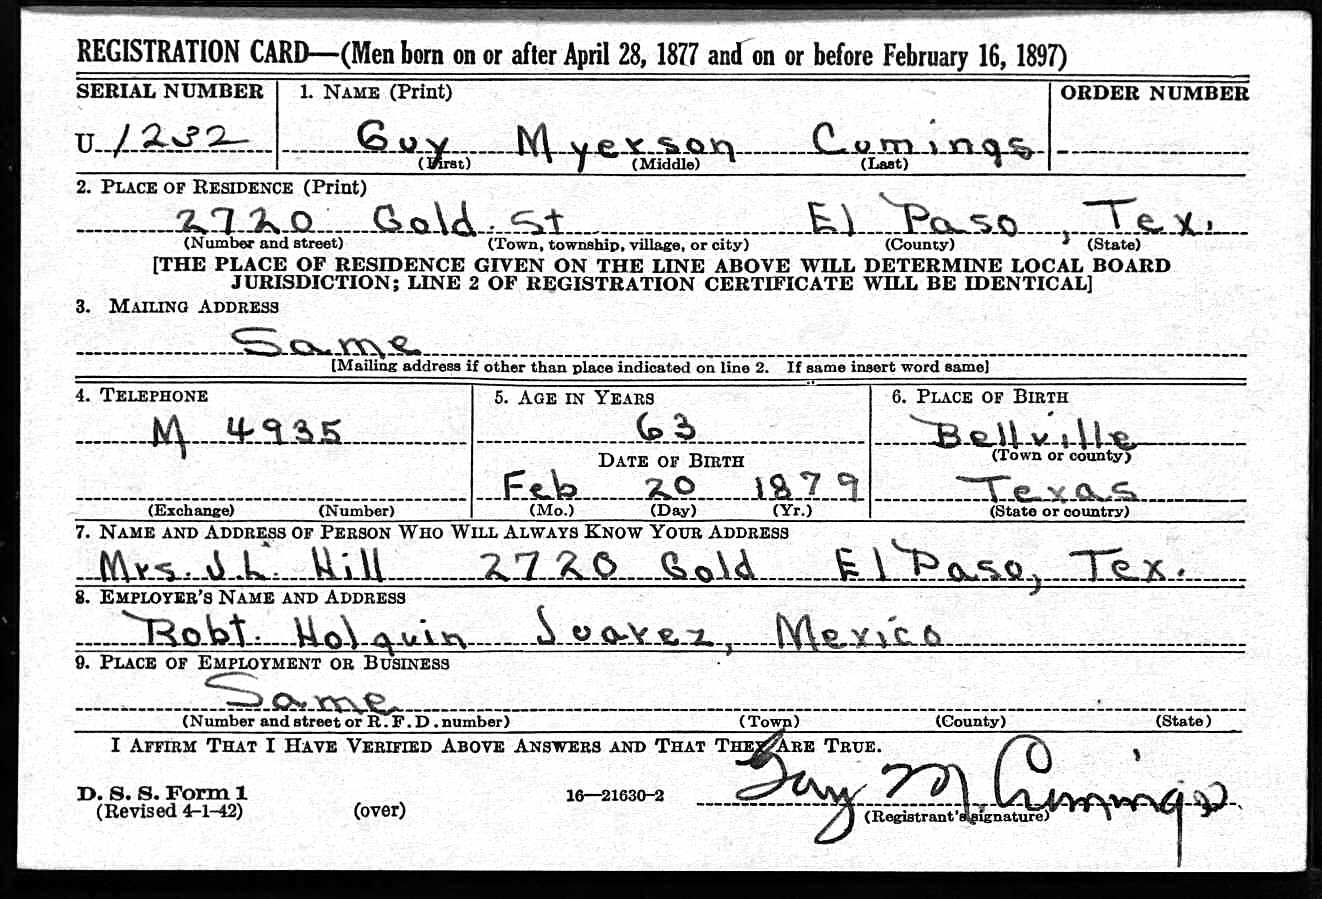 REGISTRATION CARD—(Men born on or after April 28, 1877 and on or before February 16, 1897)
SERIAL NUMBER 1. NAME (Print) ORDER NUMBER
U 1232 Guy Myerson Cumings
(First) (Middle) (Last)
2. PLACE OF RESIDENCE (Print)
2720 Gold St El Paso, Tex.
(Number and street) (Town, township, village, or city) (County) (State)
[THE PLACE OF RESIDENCE GIVEN ON THE LINE ABOVE WILL DETERMINE LOCAL BOARD
JURISDICTION; LINE 2 OF REGISTRATION CERTIFICATE WILL BE IDENTICAL]
3. MAILING ADDRESS
Same
[Mailing address if other than place indicated on line 2. If same insert word same]
4. TELEPHONE 5. AGE IN YEARS 6. PLACE OF BIRTH
M 4935 63 Bellville
(Town or county)
DATE OF BIRTH
Feb 20 1879 Texas
(Exchange) (Number) (Mo.) (Day) (Yr.) (State or country)
7. NAME AND ADDRESS OF PERSON WHO WILL ALWAYS KNOW YOUR ADDRESS
Mrs. J.L. Hill 2720 Gold El Paso, Tex.
8. EMPLOYER'S NAME AND ADDRESS
Robt. Holguin Juarez, Mexico
9. PLACE OF EMPLOYMENT OR BUSINESS
Same
(Number and street or R. F. D. number) (Town) (County) (State)
I AFFIRM THAT I HAVE VERIFIED ABOVE ANSWERS AND THAT THEY ARE TRUE.
D. S. S. Form 1
(Revised 4-1-42) (over) 16—21630-2 Guy M. Cumings
(Registrant's signature)